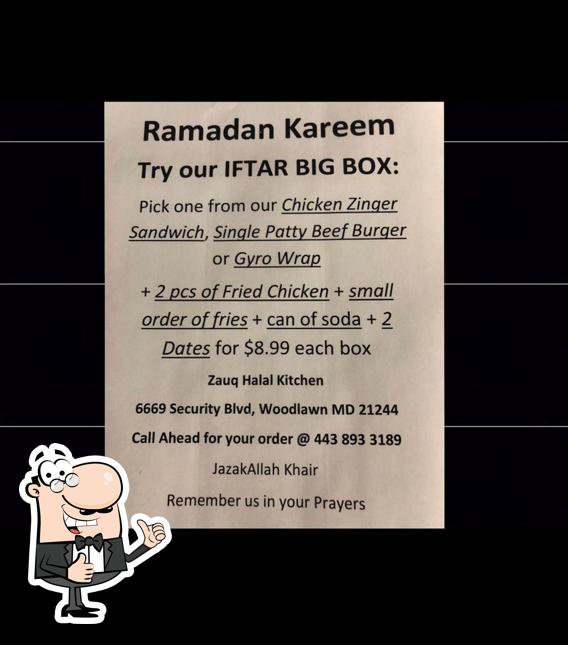 Ramadan Kareem
Try our IFTAR BIG BOX:
Pick one from our Chicken Zinger
Sandwich, Single Patty Beef Burger
or Gyro Wrap
+ 2 pcs of Fried Chicken + small
order of fries + can of soda + 2
Dates for $8.99 each box
Zauq Halal Kitchen
6669 Security Blvd, Woodlawn MD 21244
Call Ahead for your order @ 443 893 3189
JazakAllah Khair
Remember us in your Prayers